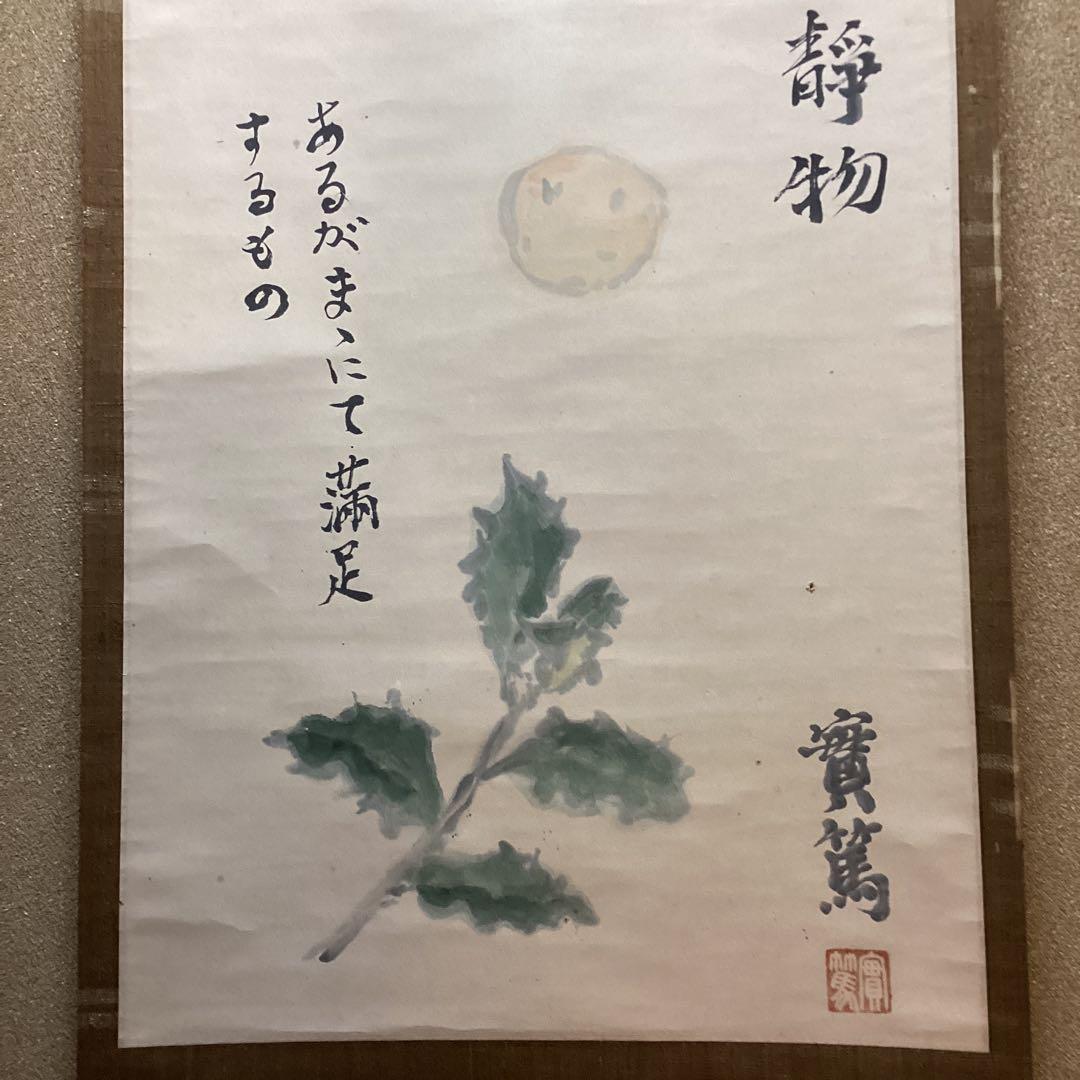 靜物
あるがまゝにて滿足
するもの
實篤
實篤